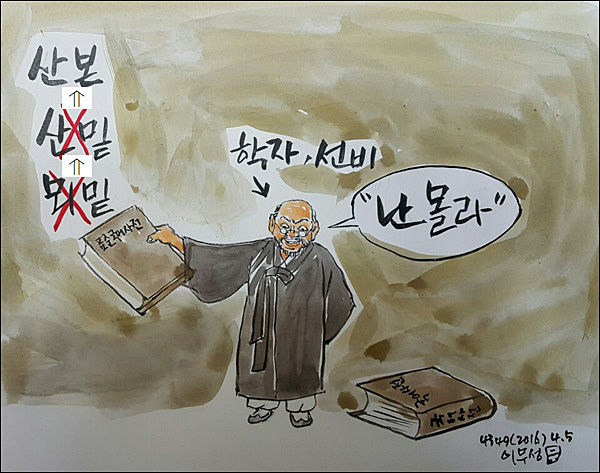 산본
⇧
산밑
⇧
뫼밑
학자, 선비
"난 몰라"
표준국어사전
4349(2016) 4.5
이무성